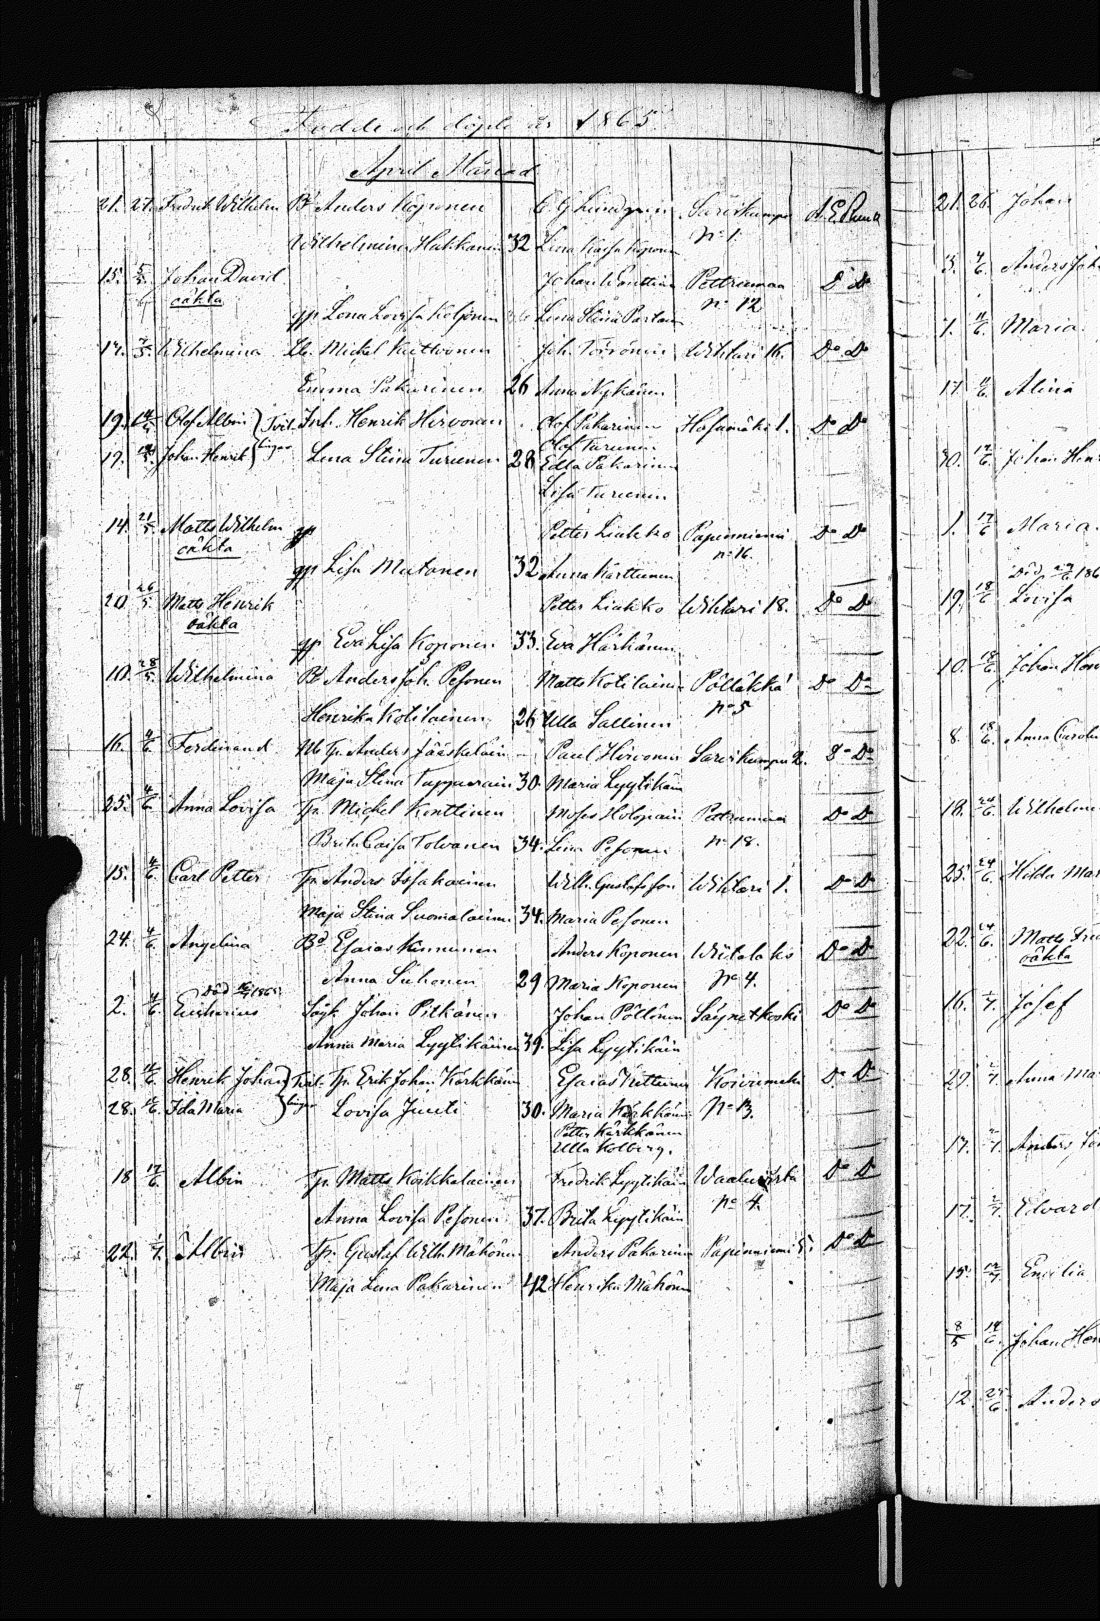 Födde och döpte år 1865
April Månad
21. 27. Fredrik Wilhelm Bd Anders Koponen C. G. Lindgren Särkikumpu A. E.
Wilhelmina Hakkarain 32 Lena Kaisa Koponen No 1.
15. 5/5 Johan David Johan Konttinen Petrumaa Do Do
oäkta No 12
gp Lena Lovisa Koljonen Lena Stina Partain
17. 7/5. Wilhelmina Lb. Mickel Kuittoinen Joh. Törrönen Wihtari 16. Do Do
Emma Pakarinen 26 Anna Nykänen
19. 14/5 Olof Albin } Tvil- Inh. Henrik Hirvonen Olof Pakarinen Hosumäki 1. Do Do
Olof Turunen
19. 14/5. Johan Henrik } lingar Lena Stina Turunen 28 Edla Pakarinen
Lisa Turunen
14. 21/5 Matts Wilhelm gp Petter Liukko Papinniemi Do Do
oäkta No 16.
gp Lisa Mutanen 32 Anna Karttunen
20. 26/5 Matts Henrik Petter Liukko Wihtari 18. Do Do
oäkta
gp Eva Lisa Koponen 33. Eva Härkänen
10. 28/5 Wilhelmina Bd Anders Joh. Pesonen Matts Kotilainen Pölläkkä Do Do
Henrika Kotilainen 26 Ulla Sallinen No 5
16. 4/6 Ferdinand Anders Jääskeläin Paul Hirvonen Särkikumpu 2. Do Do
Maja Stina Tuppurain 30. Maria Lyytikäin
25. 4/6. Anna Lovisa Tp. Mickel Konttinen Moses Holopain Petrumaa Do Do
Brita Caisa Tolvanen 34. Lena Pesonen No 18.
15. 4/6. Carl Petter Tp. Anders Issakainen Wilh. Gustafsson Wihtari 1. Do Do
Maja Stina Suomalainen 34. Maria Pesonen
24. 4/6. Angelina Bd Esaias Kinnunen Anders Koponen Wiitalaks Do Do
Anna Suhonen 29 Maria Koponen No 4.
Död 1865
2. 4/6. Eucharius Johan Pitkänen Johan Pöllönen Säynetkoski Do Do
Anna Maria Lyytikäinen 39. Lisa Lyytikäin
28. Henrik Johan } Tvil- Tp. Erik Johan Kärkkäin Esaias Kettunen Koivumäki Do Do
28. Ida Maria } lingar Lovisa Juuti 30. Maria Kärkkäin No 13.
Petter Kärkkäinen
Ulla Kolberg.
18 17/6. Albin Tp. Matts Kärkkäläinen Fredrik Lyytikäin Waaluvirta Do Do
Anna Lovisa Pesonen 37. Brita Lyytikäin No 4.
22. 1/7. Albin Tp. Gustaf Wilh. Mähönen Anders Pakarinen Papinniemi 5. Do Do
Maja Lena Pakarinen 42 Henrika Mähönen
21. 26. Johan
3. 4/6. Anders
7. 11/6. Maria.
17. 11/6. Alina
30. 17/6. Johan Henr
1. 17/6 Maria.
Död 186
19. 18/6 Lovisa
10. 18/6 Johan Hen
8. 18/6. Anna Carolin
18. 24/6. Wilhelm
25. 24/6. Hilda Mar
22. 24/6. Matts Fre
oäkta
16. 1/7. Josef
29. 1/7. Anna Ma
17. 2/7. Anders
17. 2/7. Edvard
15. Emilia
8/5 14/6. Johan Hen
12. 25/6. Anders